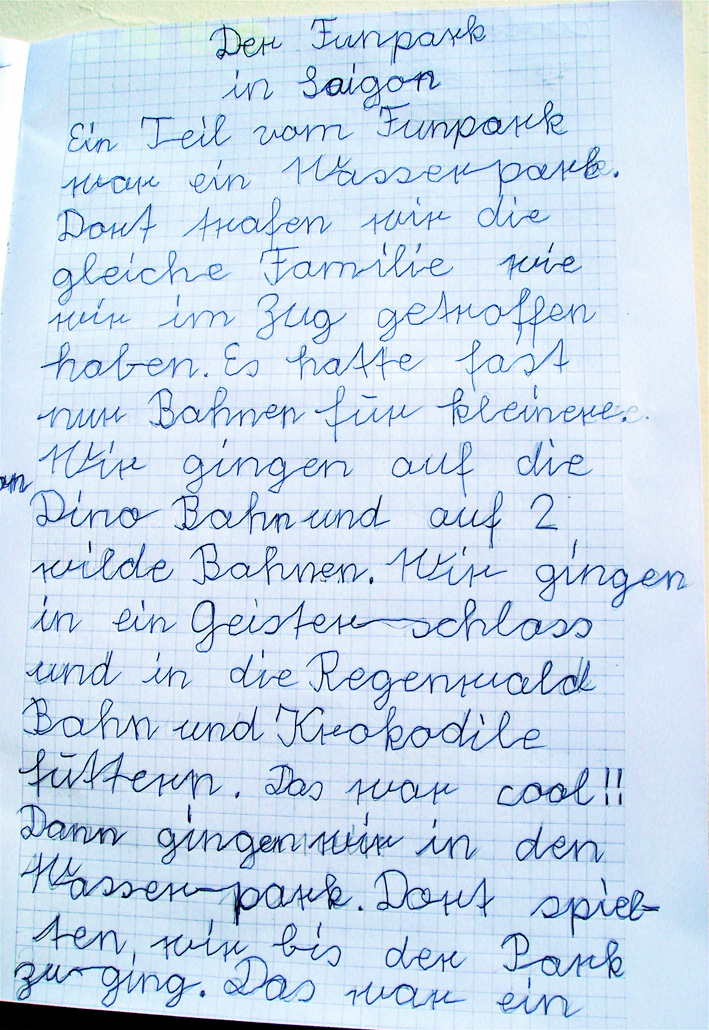 Der Funpark
in Saigon
Ein Teil vom Funpark
war ein Wasserpark.
Dort trafen wir die
gleiche Familie wie
wir im Zug getroffen
haben. Es hatte fast
nur Bahnen für kleinere.
Wir gingen auf die
Dino Bahn und auf 2
wilde Bahnen. Wir gingen
in ein Geister-schloss
und in die Regenwald
Bahn und Krokodile
füttern. Das war cool!!
Dann gingen wir in den
Wasser-park. Dort spiel-
ten wir bis der Park
zu-ging. Das war ein